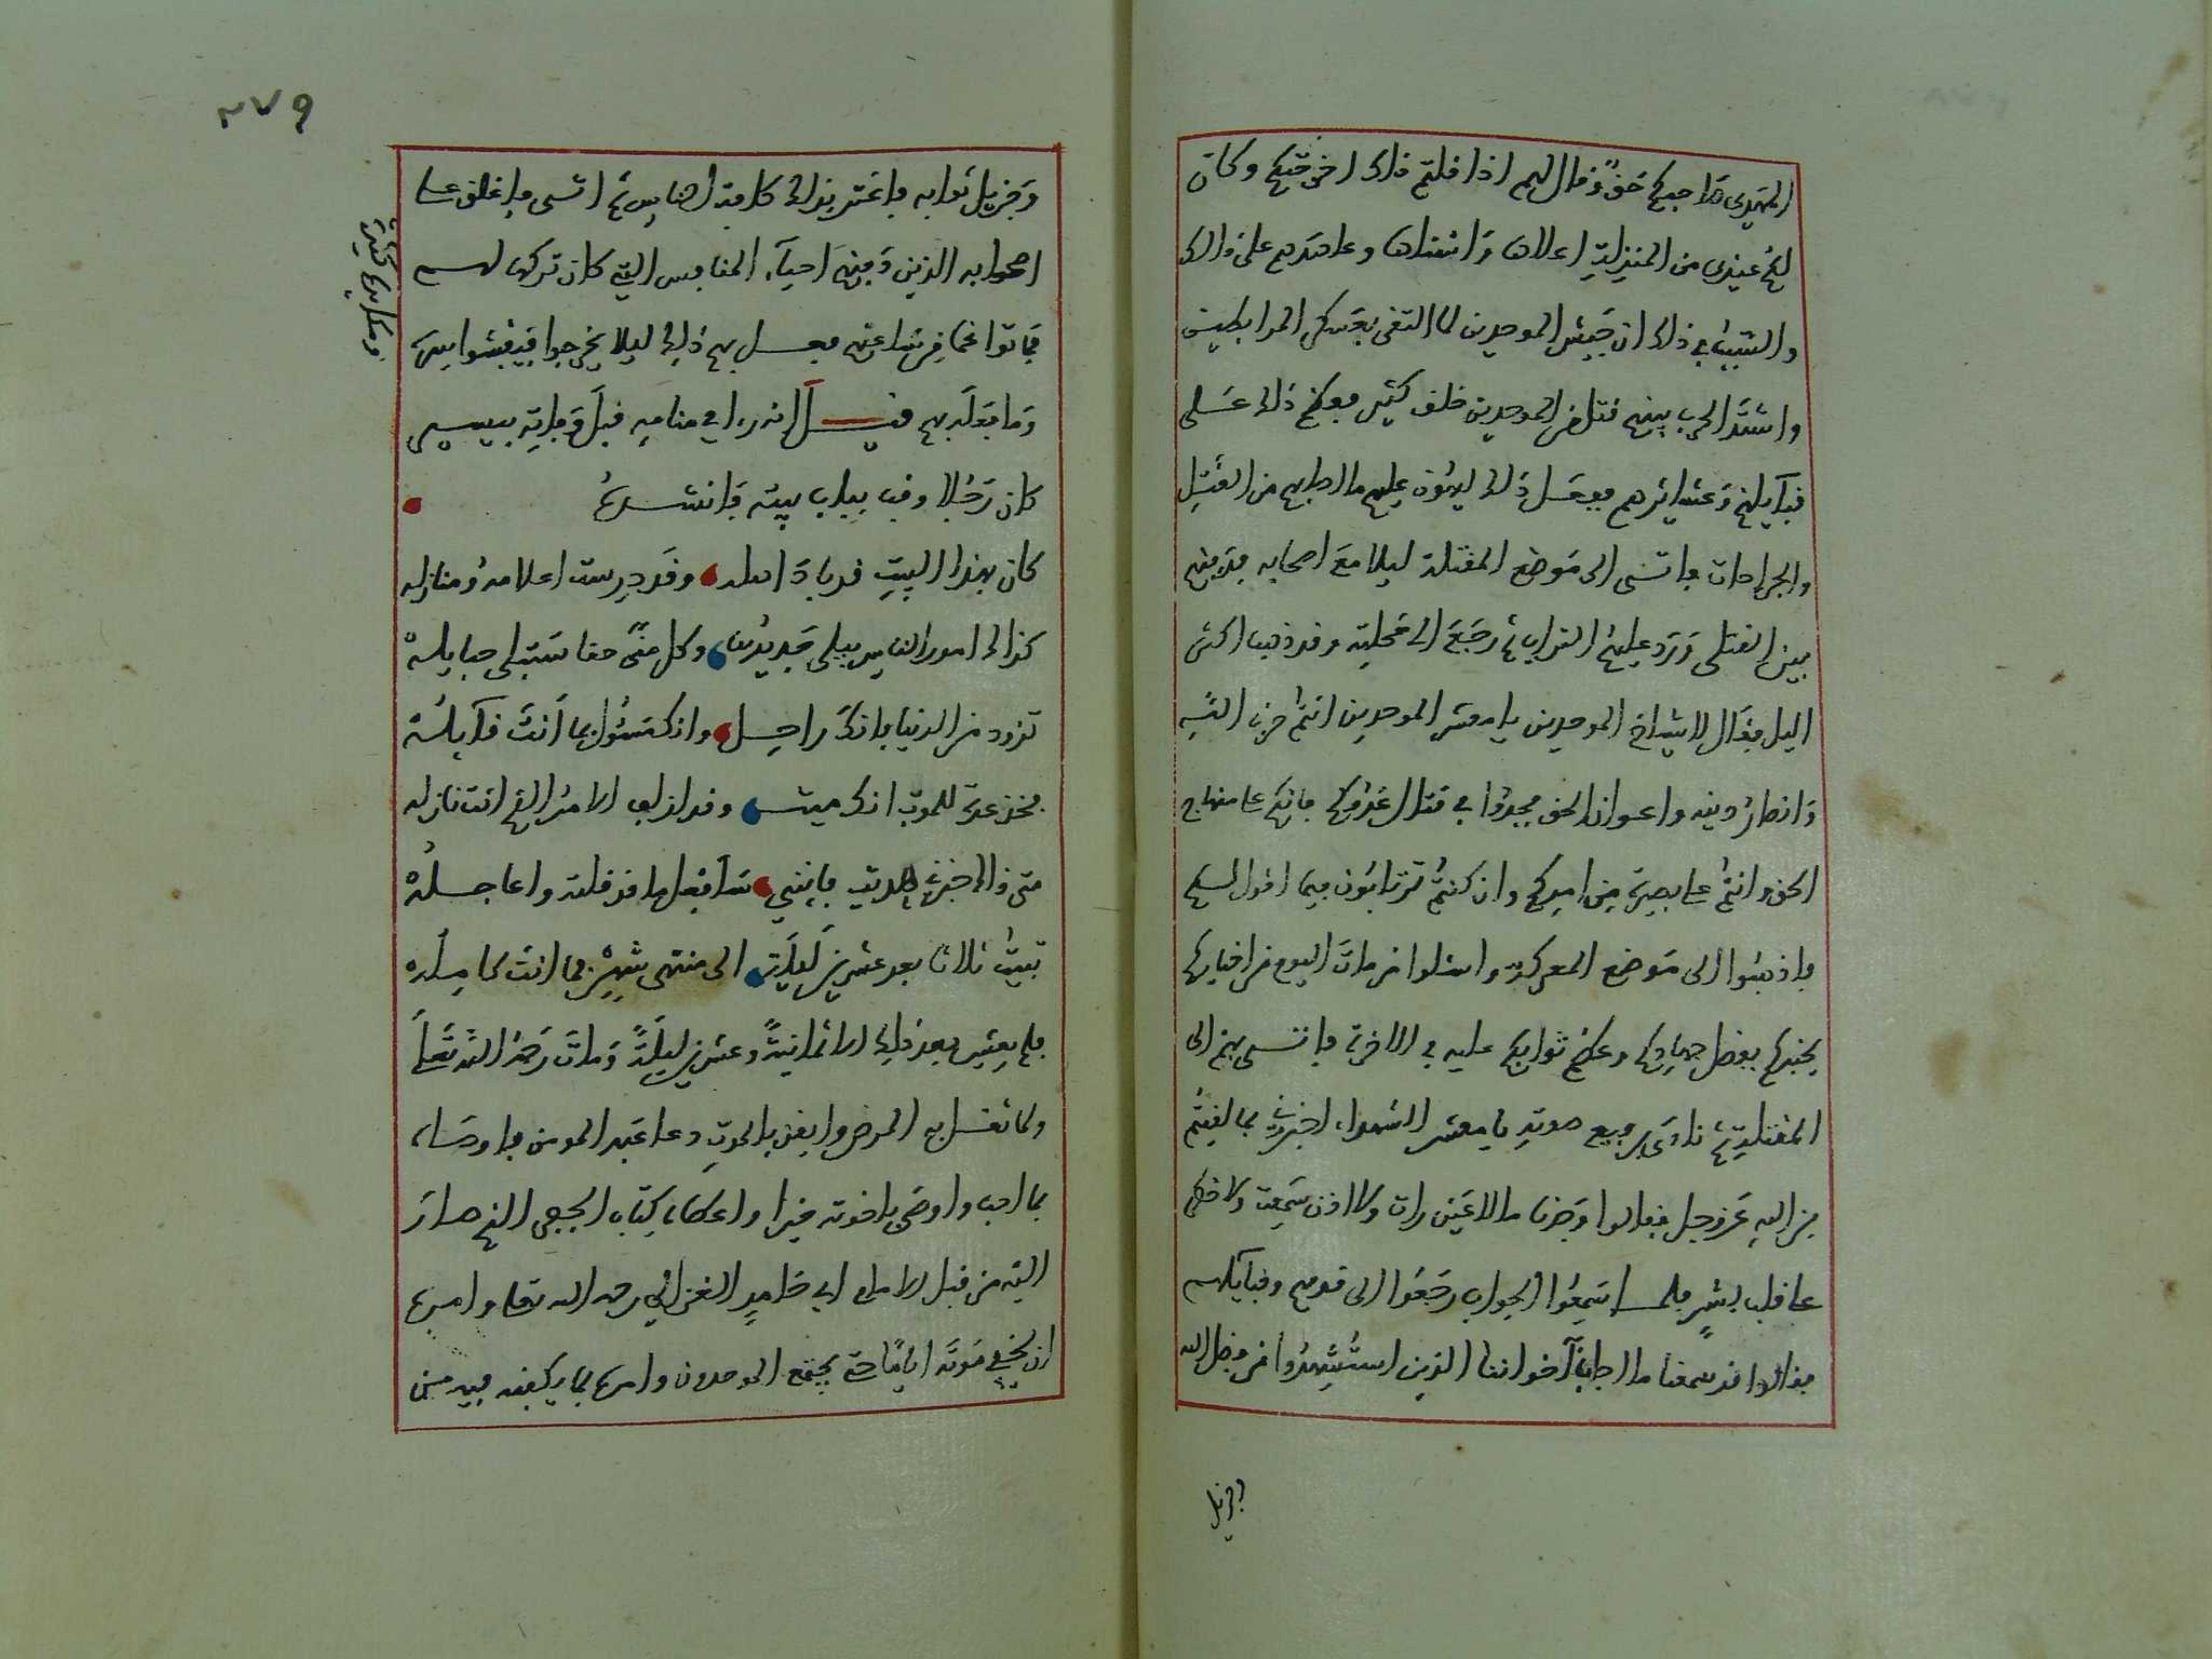 المهدي داجيكم حق وقال لهم اذا قلتم ذلك اخرجتكم وكان
لكم عندي من المنزلة اعلاها واسناها وعاهدهم على ذالك
والسبب في ذلك ان جيش الموحدين لما التقى بعسكر المرابطين
واشتد الحرب بينهم قتل من الموحدين خلق كثير فعظم ذلك على
قبآيلهم وعشايرهم ففعل ذلك ليهون عليهم ما اصابهم من القتل
والجراحات فاتى الى موضع المقتلة ليلا مع اصحابه فدفنهم
بين القتلى ورد عليهم التراب ثم رجع الى محلته وقد ذهب اكثر
اليل فقال لاشياخ الموحدين يا معشر الموحدين انتم حزب الله
وانصار دينه واعوان الحق فجدوا في قتال عدوكم فانكم على منهاج
الحق وانتم على بصيرة من امركم وان كنتم ترتابون فيما اقول لكم
فاذهبوا الى موضع المعركة واسئلوا من مات اليوم من اخيارهم
يخبركم بفضل جهادكم وعظم ثوابكم عليه في الاخرة فاتى بهم الى
المقتلة ثم نادى برفيع صوته يا معشر الشهداء اخبرونا بما لقيتم
من الله عز وجل فقالوا وجدنا ما لا عين رات ولا اذن سمعت ولا خطر
على قلب بشر فلما سمعوا الجواب رجعوا الى قومهم وقبآيلهم
فقالوا قد سمعنا ما اجابنا اخواننا الذين استشهدوا من فضل الله
وجزيل
٢٧٩
وجزيل ثوابه فاغتر بذلك كافة الناس ثم اتى فاغلق على
اصحابه الذين دفنهم احيآء المنافس التي كان تركها لهم
فماتوا غما من ساعتهم فعل بهم ذلك ليلا يخرجوا فيفشوا سره
وما فعله بهم قيل انه راى في منامه قبل وفاته بيسير
كان رجلا وقف بباب بيته فانشده
كان بهذا البيت قد باد اهله وقد درست اعلامه ومنازله
كذلك امور الناس يبلى جديدها وكل فتى حقا ستبلى حبايله
تزود من الدنيا فانك راحل وانك مسئول بما انت قآيله
فخذ عدة للموت انك ميت وقد ازف الامر الذي انت نازله
متى ذاك خبرني هديت فانني سافعل ما قد قلته واعاجله
تبيت ثلاثا بعد عشرين ليلة الى منتهى شهر فما انت كامله
فلم يعش بعد ذلك الا ثمانية وعشرين ليلة ومات رحمه الله تعلى
ولما ثقل به المرض وايقن بالموت دعا عبد المومن فاوصاه
بما احب واوصى باخوته خيرا واعطاه كتاب الجفر الذي صار
اليه من قبل الامام ابي حامد الغزالي رحمه الله تعلى وامره
ان يخفي موته اياما حتى يجتمع الموحدون وامره بما يكفنه فيه من